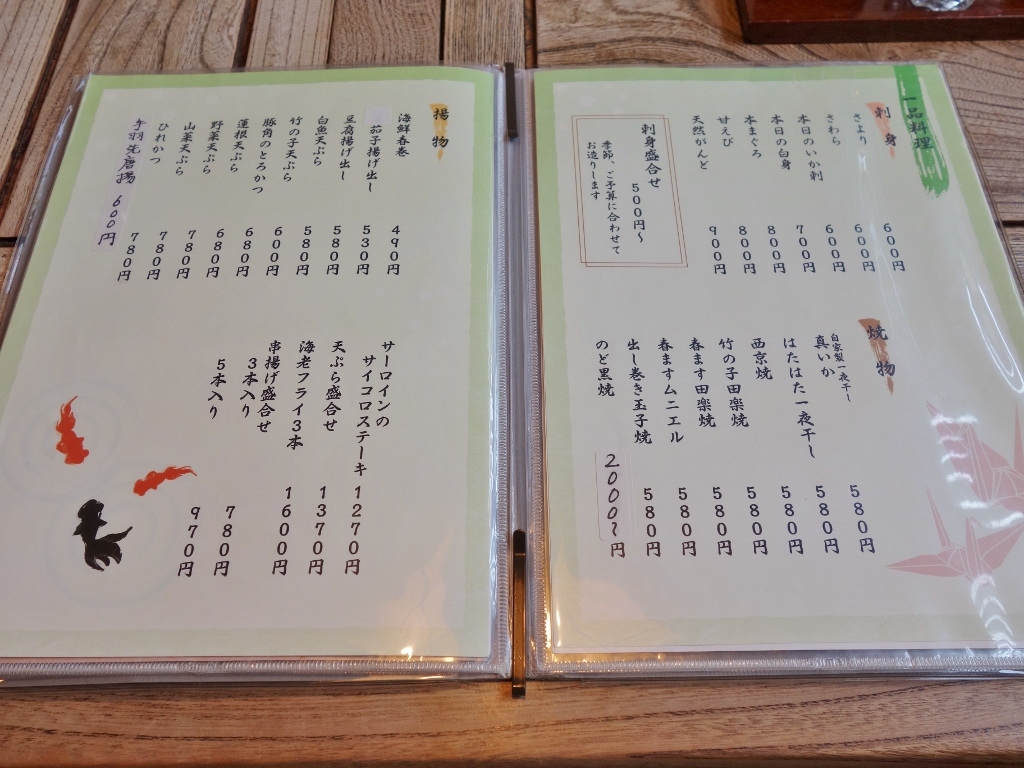 一品料理
刺身
さより 600円
さわら 600円
本日のいか刺 600円
本日の白身 700円
本まぐろ 800円
甘えび 800円
天然がんど 900円
刺身盛合せ
500円〜
季節、ご予算に合わせて
お造りします
焼物
自家製一夜干し
真いか 580円
はたはた一夜干し 580円
西京焼 580円
竹の子田楽焼 580円
春ます田楽焼 580円
春ますムニエル 580円
出し巻き玉子焼 580円
のど黒焼 2000〜円
揚物
海鮮春巻 490円
茄子揚げ出し 530円
豆腐揚げ出し 580円
白魚天ぷら 580円
竹の子天ぷら 600円
豚角のとろかつ 680円
蓮根天ぷら 680円
野菜天ぷら 780円
山菜天ぷら 780円
ひれかつ 780円
手羽先唐揚 600円
サーロインの
サイコロステーキ 1270円
天ぷら盛合せ 1370円
海老フライ3本 1600円
串揚げ盛合せ
3本入り 780円
5本入り 970円